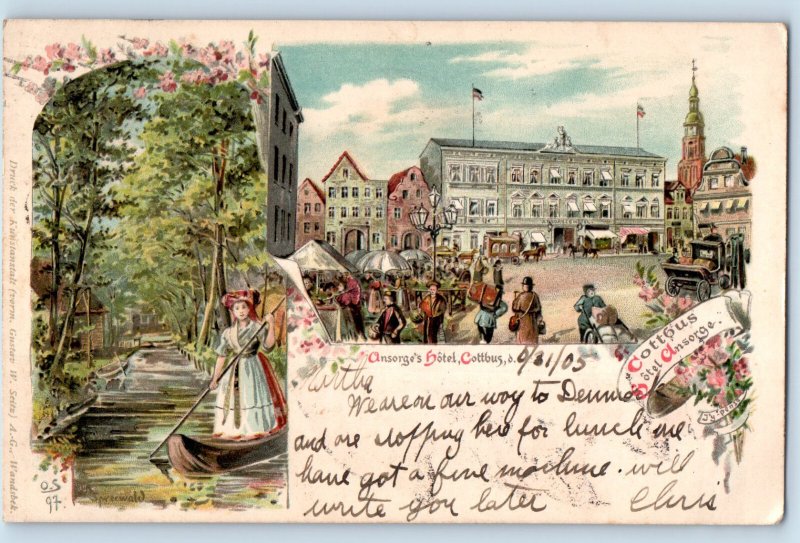 Druck der Kunstanstalt (vorm. Gustav W. Seitz) A.-G., Wandsbek.
O.S
97
Spreewald
Cottbus
Hôtel Ansorge.
Ansorge's Hôtel, Cottbus, d. 8/31/05
Martha
We are on our way to Denmark
and are stopping here for lunch we
have got a fine machine. will
write you later Chris